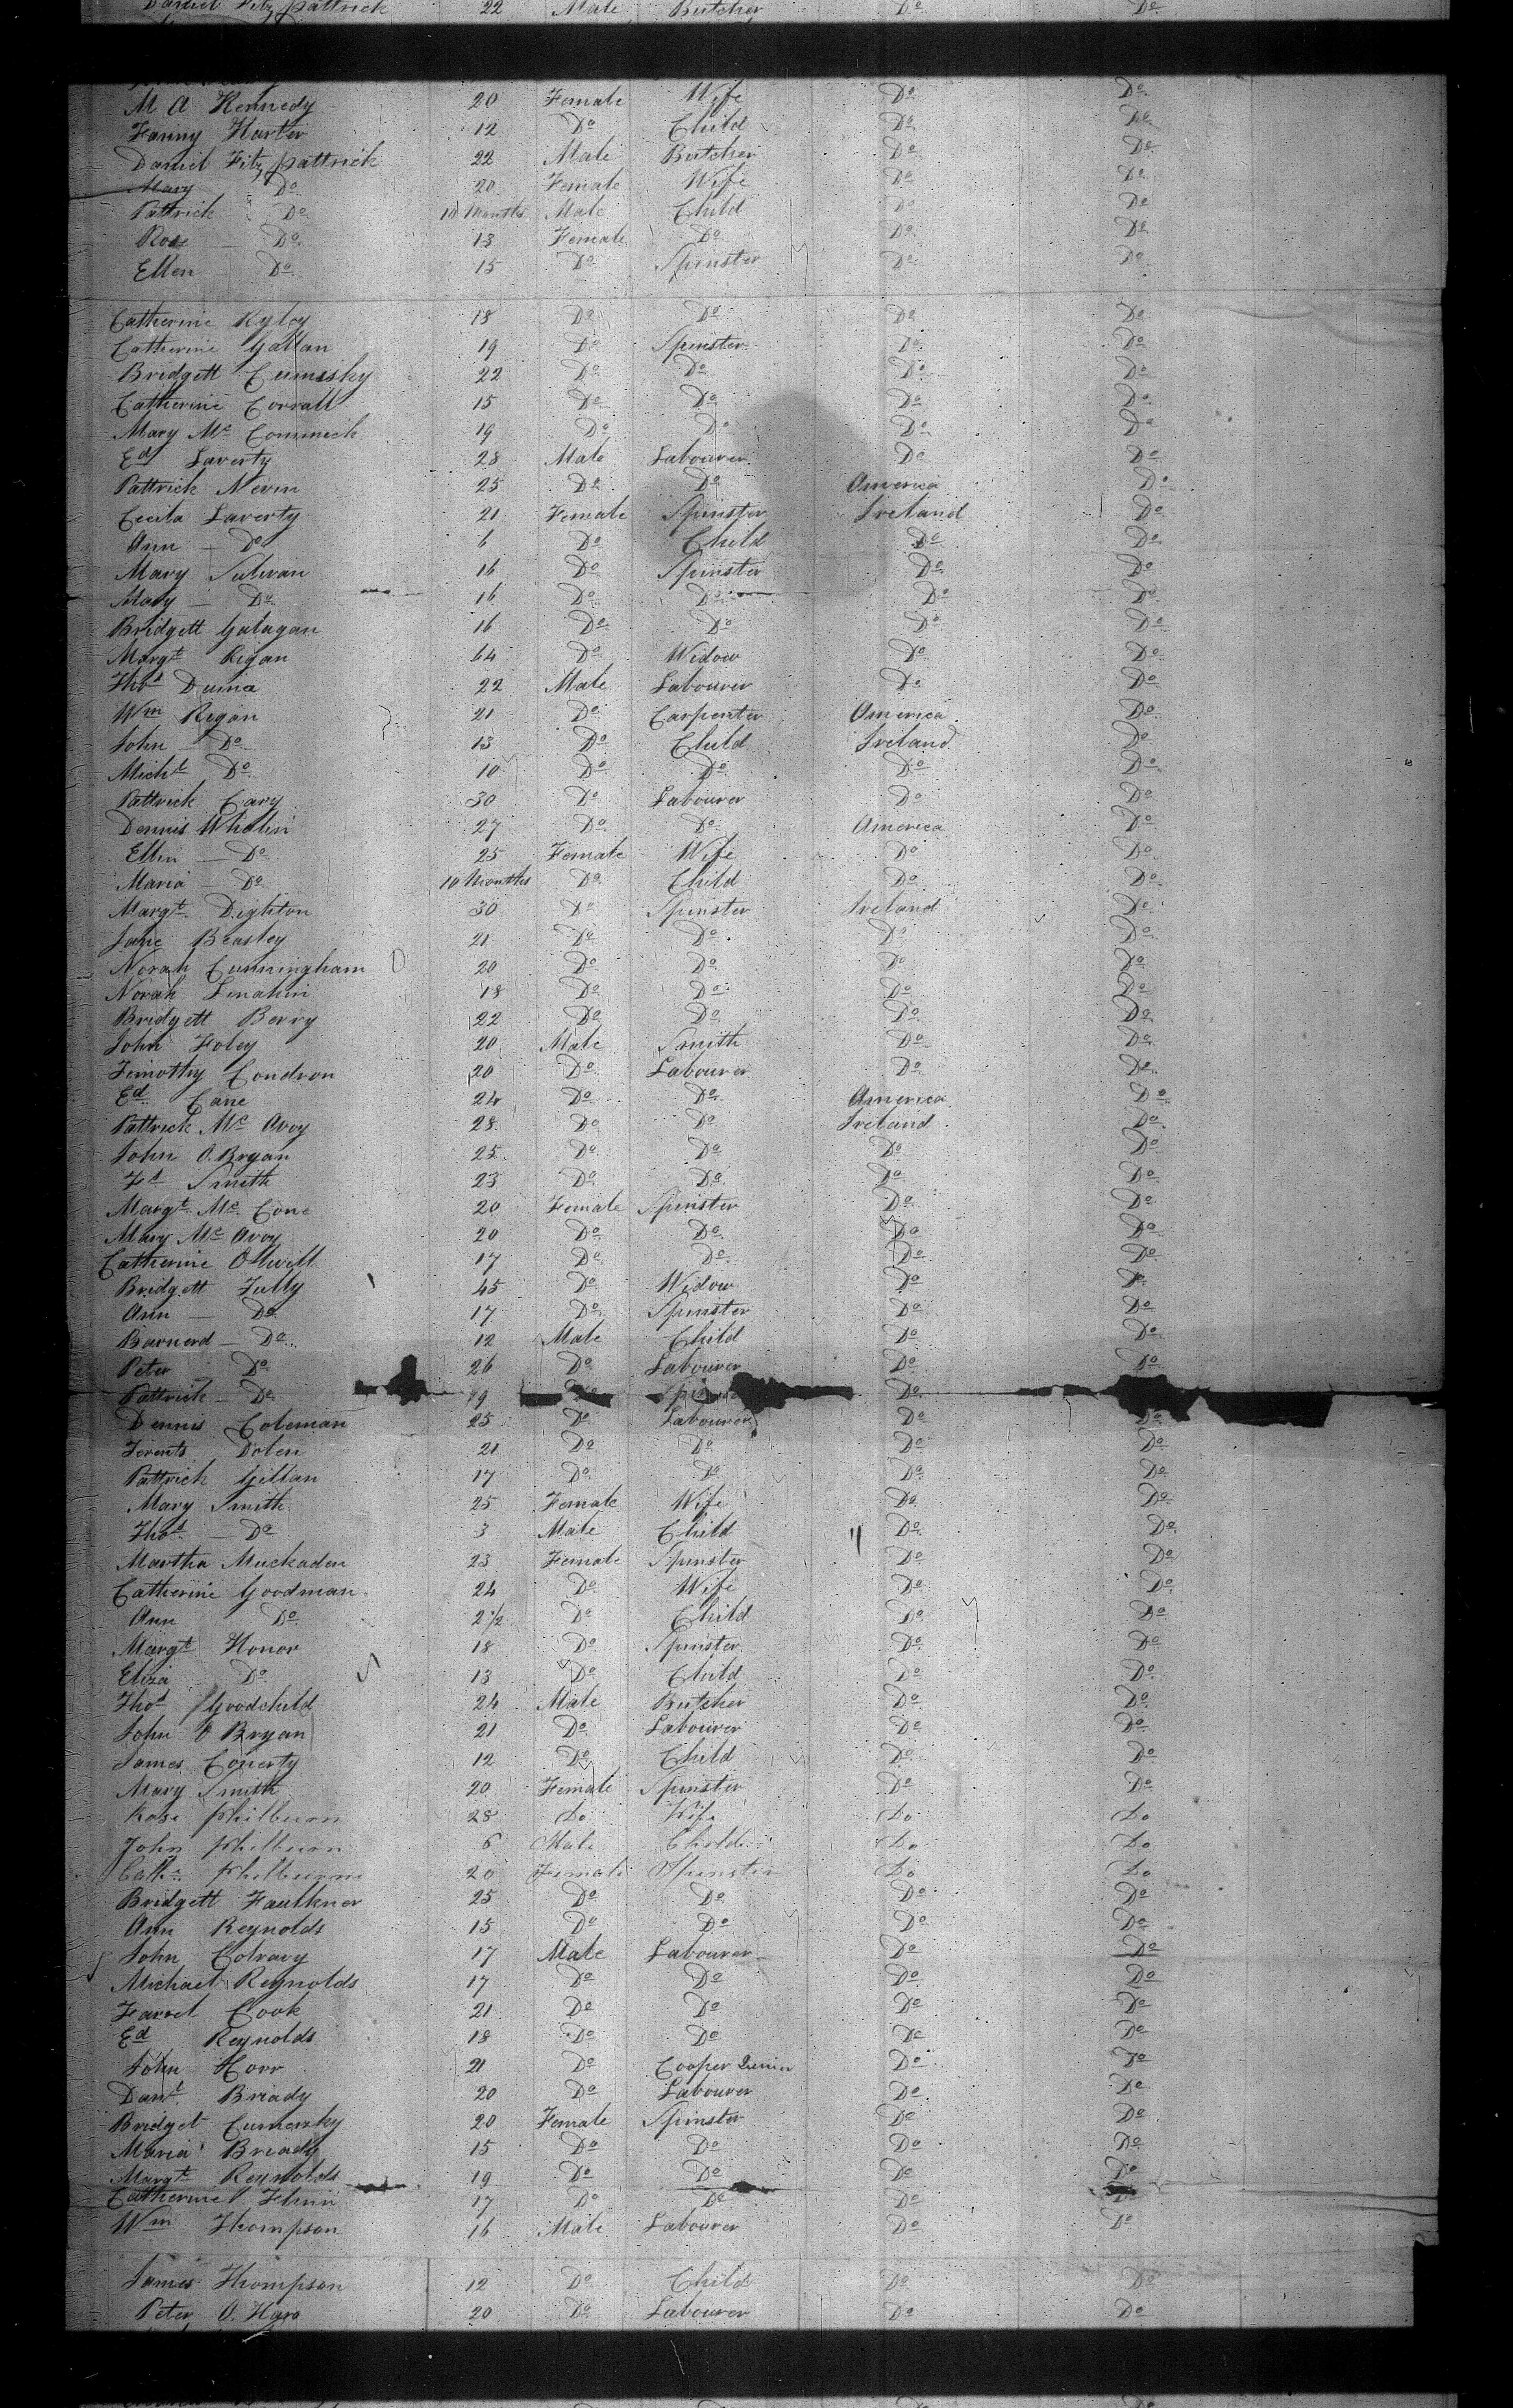 Daniel Fitz pattrick 22 Male Butcher Do Do
M A Kennedy 20 Female Wife Do Do
Fanny Harter 12 Do Child Do Do
Daniel Fitz pattrick 22 Male Butcher Do Do
Mary Do 20 Female Wife Do Do
Pattrick Do 10 Months Male Child Do Do
Rose Do 13 Female Do Do Do
Ellen Do 15 Do Spinster Do Do
Catherine Ryley 18 Do Do Do Do
Catherine Gallan 19 Do Spinster Do Do
Bridgett Cumisky 22 Do Do Do Do
Catherine Corrall 15 Do Do Do Do
Mary Mc Commick 19 Do Do Do Do
Ed Laverty 28 Male Labourer Do Do
Pattrick Nevin 25 Do Do America Do
Cecila Laverty 21 Female Spinster Ireland Do
Ann Do 6 Do Child Do Do
Mary Sulivan 16 Do Spinster Do Do
Mary Do 16 Do Do Do Do
Bridgett Galagan 16 Do Do Do Do
Margt Rigan 64 Do Widow Do Do
Thos Duina 22 Male Labourer Do Do
Wm Regan 21 Do Carpenter America Do
John Do 13 Do Child Ireland Do
Michl Do 10 Do Do Do Do
Pattrick Cary 30 Do Labourer Do Do
Dennis Whalin 27 Do Do America Do
Ellin Do 25 Female Wife Do Do
Maria Do 10 Months Do Child Do Do
Margt Dighton 30 Do Spinster Ireland Do
Jane Beasley 21 Do Do Do Do
Norah Cunningham 20 Do Do Do Do
Norah Linahin 18 Do Do Do Do
Bridgett Berry 22 Do Do Do Do
John Foley 20 Male Smith Do Do
Timothy Condron 20 Do Labourer Do Do
Ed Cane 24 Do Do America Do
Pattrick Mc Avoy 28 Do Do Ireland Do
John O. Bryan 25 Do Do Do Do
Smith 23 Do Do Do Do
Margt Mc Cone 20 Female Spinster Do Do
Mary Mc Avoy 20 Do Do Do Do
Catherine Ottwill 17 Do Do Do Do
Bridgett Tully 45 Do Widow Do Do
Ann Do 17 Do Spinster Do Do
Barnerd Do 12 Male Child Do Do
Peter Do 26 Do Labourer Do Do
Pattrick Do 19 Do Do
Dennis Coleman 25 Do Labourer Do Do
Terents Dolen 21 Do Do Do Do
Pattrick Gillan 17 Do Do Do Do
Mary Smith 25 Female Wife Do Do
Thos Do 3 Male Child Do Do
Martha Muckaden 23 Female Spinster Do Do
Catherine Goodman 24 Do Wife Do Do
Ann Do 2 1/2 Do Child Do Do
Margt Honor 18 Do Spinster Do Do
Eliza Do 13 Do Child Do Do
Thos Goodchild 24 Male Butcher Do Do
John O Bryan 21 Do Labourer Do Do
James Conerty 12 Do Child Do Do
Mary Smith 20 Female Spinster Do Do
Rose Philburn 28 Do Wife Do Do
John Philburn 6 Male Child Do Do
Cathe Philburn 20 Female Spinster Do Do
Bridgett Faulkner 25 Do Do Do Do
Ann Reynolds 15 Do Do Do Do
John Colravy 17 Male Labourer Do Do
Michael Reynolds 17 Do Do Do Do
Farrel Cook 21 Do Do Do Do
Ed Reynolds 18 Do Do Do Do
John Horr 21 Do Cooper Do Do
Danl Briady 20 Do Labourer Do Do
Bridget Cumersky 20 Female Spinster Do Do
Maria Briady 15 Do Do Do Do
Margt Reynolds 19 Do Do Do Do
Catherine Flinn 17 Do Do Do Do
Wm Thompson 16 Male Labourer Do Do
James Thompson 12 Do Child Do Do
Peter O. Hara 20 Do Labourer Do Do